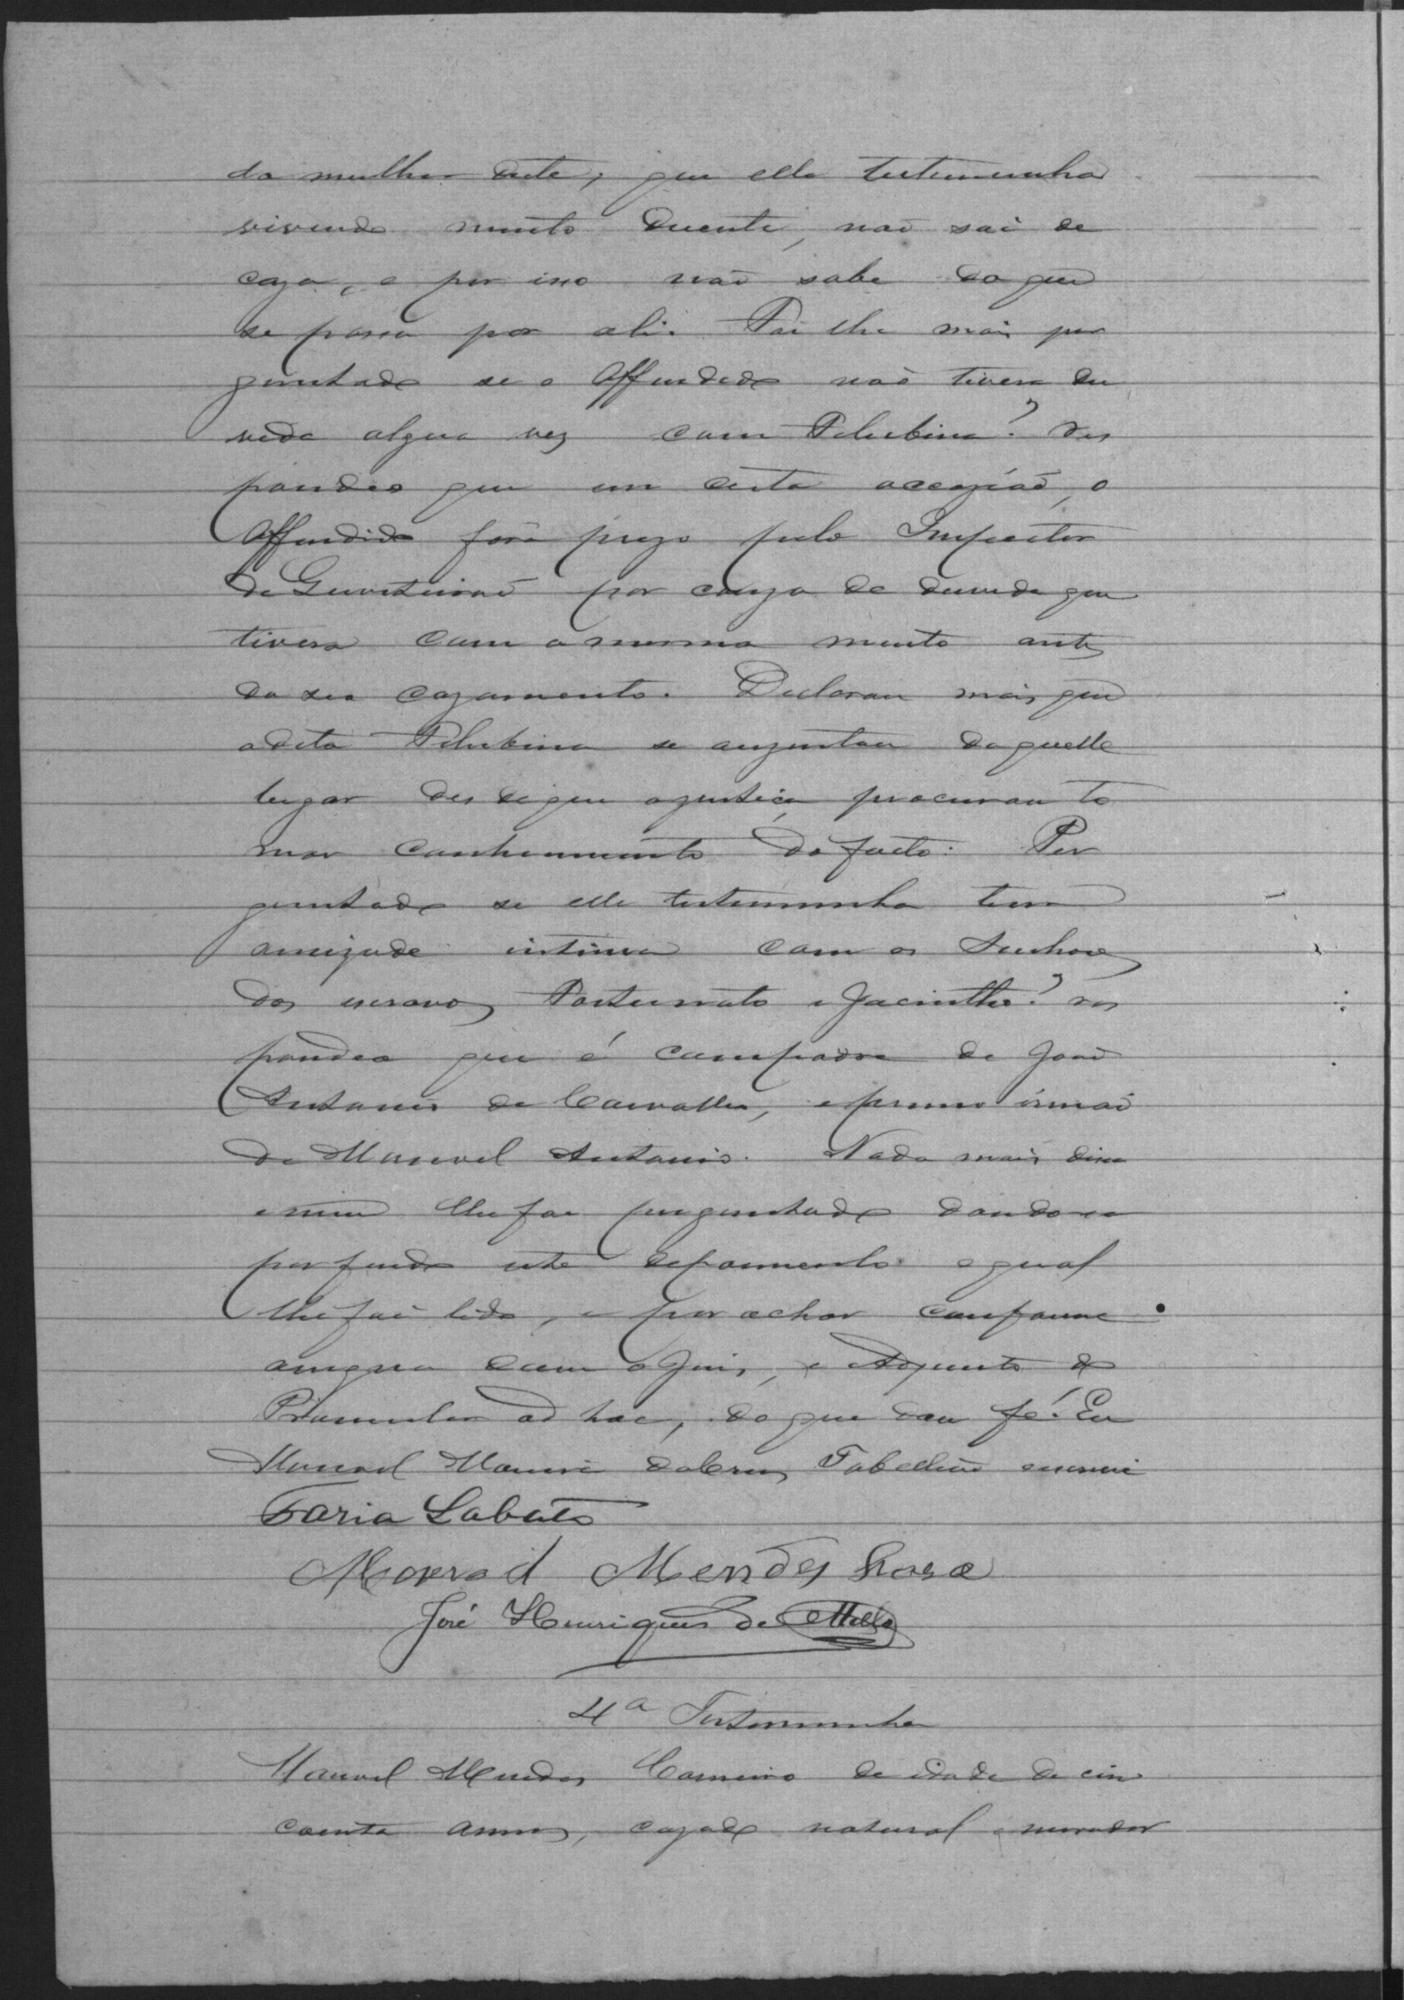 da mulher deste; que elle testemunha
vivendo muito duente, não sai de
caza, e por isso não sabe do que
se passa por ali. Foi lhe mais per
guntado se o Offendido não tivera du
vida algua vez com Felisbina? res
pondeo que em certa occazião, o
Offendido fora prezo pelo Inspector
de Quarteirão por cauza de duvida que
tivera com a mesma muito antes
do seu cazamento. Declarou mais que
a dita Felisbina se auzentou daquelle
lugar des de que a justiça procurou to
mar conhecimento do facto. Per
guntado se elle testemunha tem
amizade intima com os Senhores
dos escravos Fortunato e Jacintho? res
pondeo que é compadre de João
Antonio de Carvalho, e primo irmão
de Manoel Antonio. Nada mais disse
e nem lhe foi perguntado dando se
por findo este depoimento o qual
lhe foi lido, e por achar conforme
assigna com o Juis, e Adjunto do
Promotor ad hoc, do que dou fé. Eu
Manoel Tabellião escrevi
Faria Lobato
Manoel Mendes Rosa
José Henriques de Mello
4ª Testemunha
Manoel Mendes Carneiro de idade de cin
coenta annos, cazado natural e morador